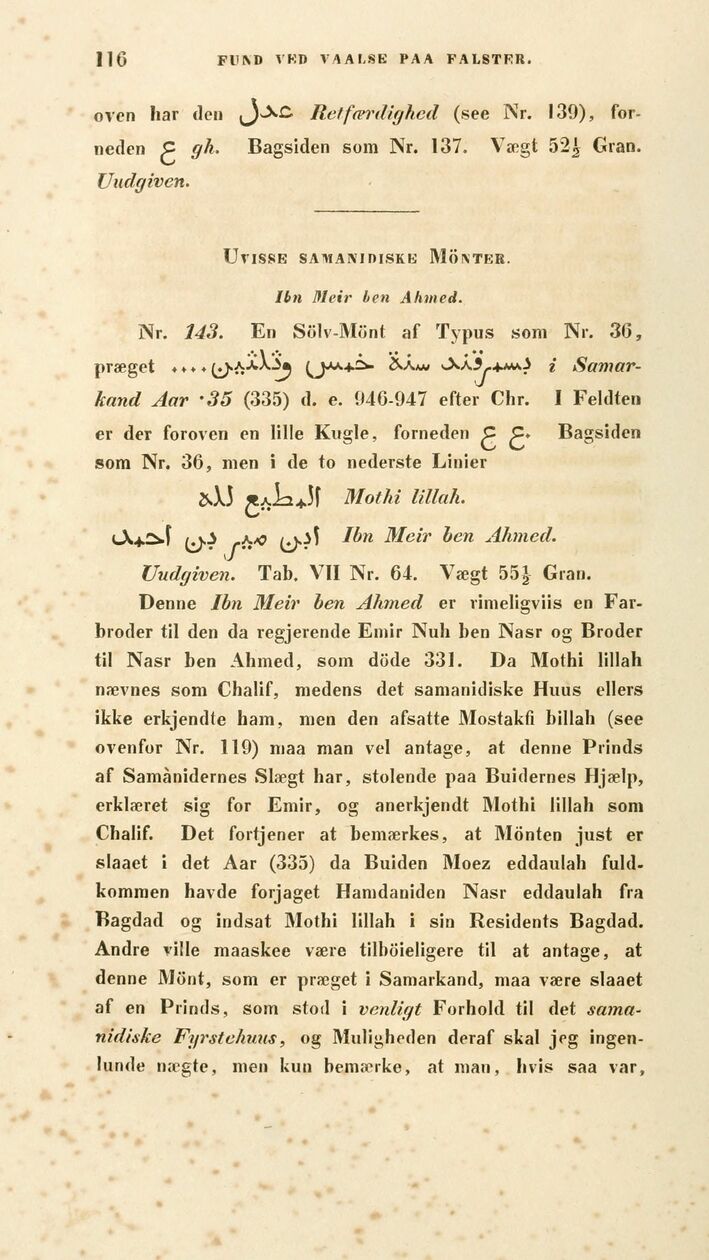 116 FUND VED VAALSE PAA FALSTER.
oven har den عدل Retfærdighed (see Nr. 139), for-
neden غ gh. Bagsiden som Nr. 137. Vægt 52½ Gran.
Uudgiven.
UVISSE SAMANIDISKE MÖNTER.
Ibn Meir ben Ahmed.
Nr. 143. En Sölv-Mönt af Typus som Nr. 36,
præget بسمرقند سنة خمس وثلثين.... i Samar-
kand Aar ·35 (335) d. e. 946-947 efter Chr. I Feldten
er der foroven en lille Kugle, forneden ع ع. Bagsiden
som Nr. 36, men i de to nederste Linier
المطيع لله Mothi lillah.
ابن مير بن احمد Ibn Meir ben Ahmed.
Uudgiven. Tab. VII Nr. 64. Vægt 55½ Gran.
Denne Ibn Meir ben Ahmed er rimeligviis en Far-
broder til den da regjerende Emir Nuh ben Nasr og Broder
til Nasr ben Ahmed, som döde 331. Da Mothi lillah
nævnes som Chalif, medens det samanidiske Huus ellers
ikke erkjendte ham, men den afsatte Mostakfi billah (see
ovenfor Nr. 119) maa man vel antage, at denne Prinds
af Samànidernes Slægt har, stolende paa Buidernes Hjælp,
erklæret sig for Emir, og anerkjendt Mothi lillah som
Chalif. Det fortjener at bemærkes, at Mönten just er
slaaet i det Aar (335) da Buiden Moez eddaulah fuld-
kommen havde forjaget Hamdaniden Nasr eddaulah fra
Bagdad og indsat Mothi lillah i sin Residents Bagdad.
Andre ville maaskee være tilböieligere til at antage, at
denne Mönt, som er præget i Samarkand, maa være slaaet
af en Prinds, som stod i venligt Forhold til det sama-
nidiske Fyrstehuus, og Muligheden deraf skal jeg ingen-
lunde nægte, men kun bemærke, at man, hvis saa var,